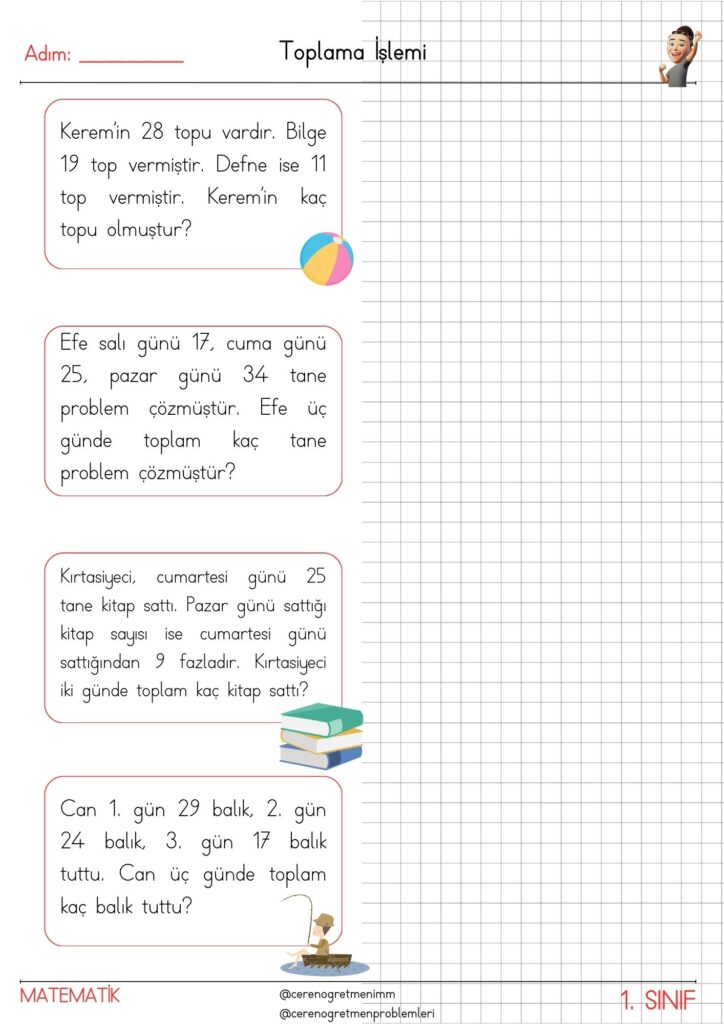 Adım: __________
Toplama İşlemi
Kerem'in 28 topu vardır. Bilge
19 top vermiştir. Defne ise 11
top vermiştir. Kerem'in kaç
topu olmuştur?
Efe salı günü 17, cuma günü
25, pazar günü 34 tane
problem çözmüştür. Efe üç
günde toplam kaç tane
problem çözmüştür?
Kırtasiyeci, cumartesi günü 25
tane kitap sattı. Pazar günü sattığı
kitap sayısı ise cumartesi günü
sattığından 9 fazladır. Kırtasiyeci
iki günde toplam kaç kitap sattı?
Can 1. gün 29 balık, 2. gün
24 balık, 3. gün 17 balık
tuttu. Can üç günde toplam
kaç balık tuttu?
MATEMATİK
@cerenogretmenimm
@cerenogretmenproblemleri
1. SINIF